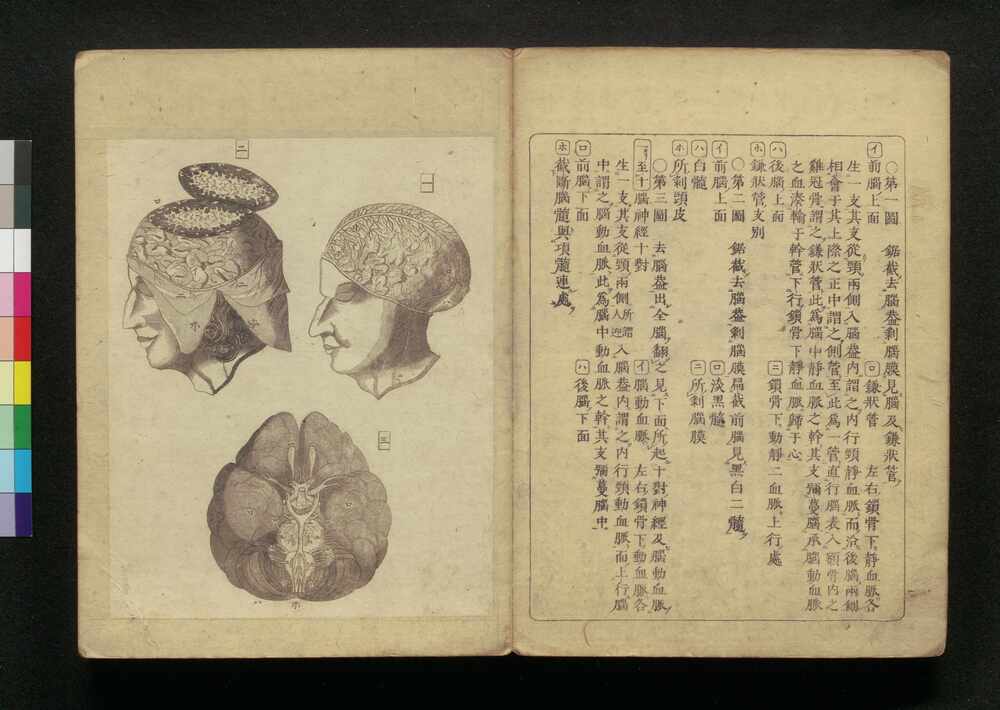 〇第一圖　鋸截去腦葢剝腦膜見腦及鎌狀管
イ前腦上面　ロ鎌狀管　左右鎖骨下靜血脈各
生一支其支從頸兩側入腦葢內謂之內行頸靜血脈而沿後腦兩側
相會于其上際之正中謂之側管至此爲一管直行腦表入額骨內之
雞冠骨謂之鎌狀管此爲腦中靜血脈之幹其支彌蔓腦承腦動血脈
之血湊輸于幹管下行鎖骨下靜血脈歸于心
ハ後腦上面　ニ鎖骨下動靜二血脈上行處
ホ鎌狀管支別
〇第二圖　鋸截去腦葢剝腦膜扁截前腦見黑白二髓
イ前腦上面　ロ淡黑髓
ハ白髓　ニ所剝腦膜
ホ所剝頭皮
〇第三圖　去腦葢出全腦翻之見下面所起十對神經及腦動血脈
一至十腦神經十對　イ腦動血脈　左右鎖骨下動血脈各
生一支其支從頸兩側所謂人迎入腦葢內謂之內行頸動血脈而上行腦
中謂之腦動血脈此爲腦中動血脈之幹其支彌蔓腦中
ロ前腦下面　ハ後腦下面
ホ截斷腦髓與項髓連處
一
二
三